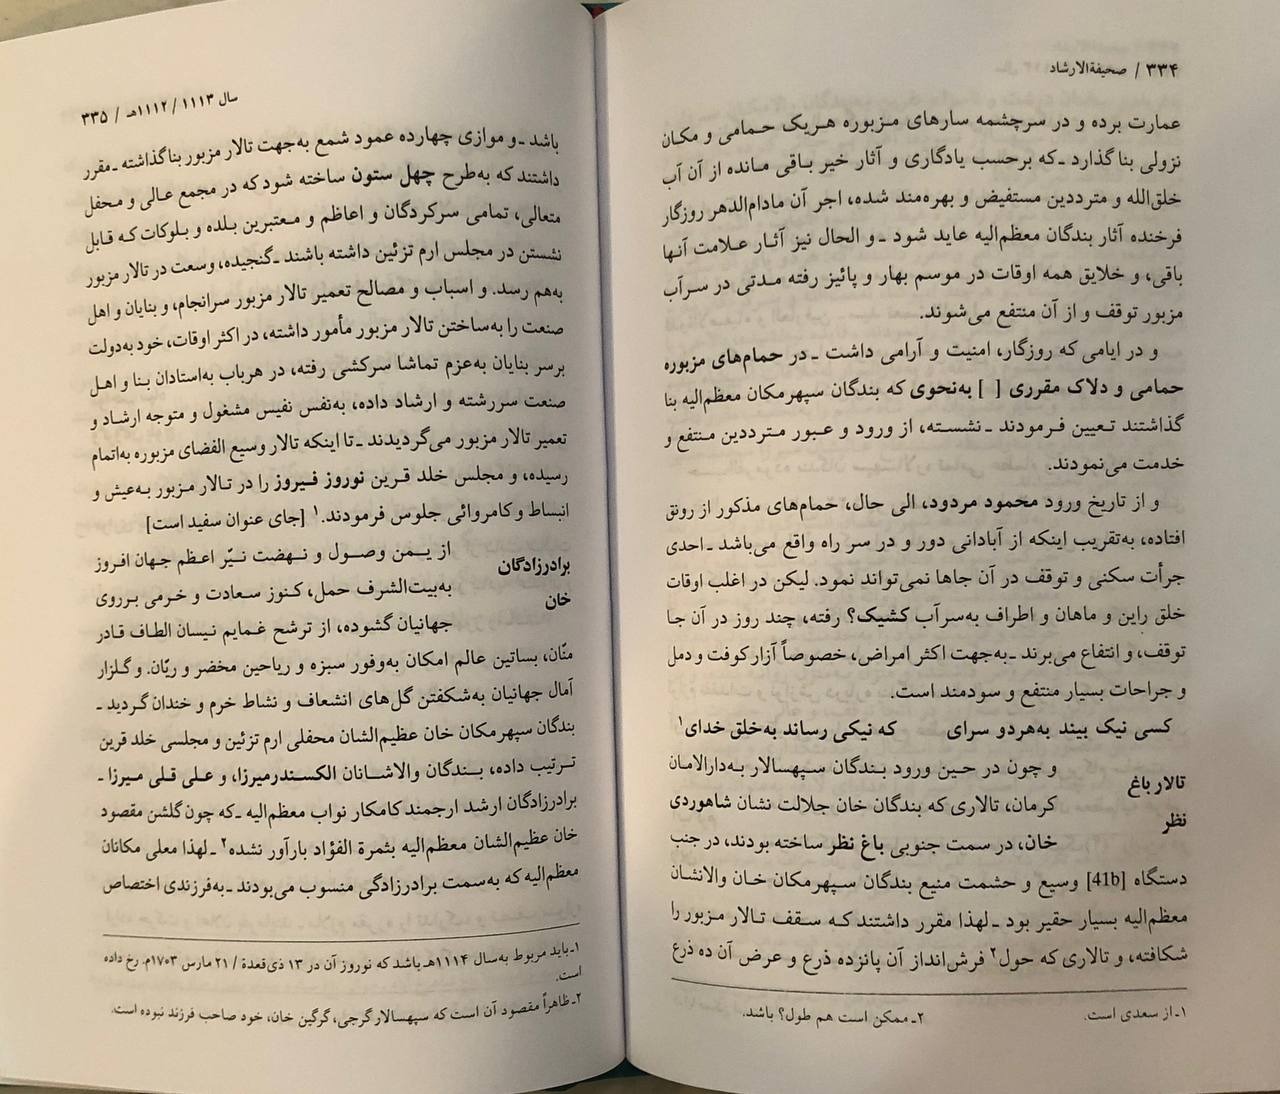 ۳۳۴ / صحیفةالارشاد
عمارت برده و در سرچشمه سارهای مزبوره هریک حمامی و مکان
نزولی بنا گذارد ـ که برحسب یادگاری و آثار خیر باقی مانده از آن آب
خلق‌الله و مترددین مستفیض و بهره‌مند شده، اجر آن مادام‌الدهر روزگار
فرخنده آثار بندگان معظم‌الیه عاید شود ـ و الحال نیز آثار علامت آنها
باقی، و خلایق همه اوقات در موسم بهار و پائیز رفته مدتی در سرآب
مزبور توقف و از آن منتفع می‌شوند.
و در ایامی که روزگار، امنیت و آرامی داشت ـ در حمام‌های مزبوره
حمامی و دلاک مقرری [ ] به‌نحوی که بندگان سپهرمکان معظم‌الیه بنا
گذاشتند تعیین فرمودند ـ نشسته، از ورود و عبور مترددین منتفع و
خدمت می‌نمودند.
و از تاریخ ورود محمود مردود، الی حال، حمام‌های مذکور از رونق
افتاده، به‌تقریب اینکه از آبادانی دور و در سر راه واقع می‌باشد ـ احدی
جرأت سکنی و توقف در آن جاها نمی‌تواند نمود. لیکن در اغلب اوقات
خلق راین و ماهان و اطراف به‌سرآب کشیک؟ رفته، چند روز در آن جا
توقف، و انتفاع می‌برند ـ به‌جهت اکثر امراض، خصوصاً آزار کوفت و دمل
و جراحات بسیار منتفع و سودمند است.
کسی نیک بیند به‌هردو سرای که نیکی رساند به‌خلق خدای۱
تالار باغ نظر
و چون در حین ورود بندگان سپهسالار به‌دارالامان
کرمان، تالاری که بندگان خان جلالت نشان شاهوردی
خان، در سمت جنوبی باغ نظر ساخته بودند، در جنب
دستگاه [41b] وسیع و حشمت منیع بندگان سپهرمکان خان والانشان
معظم‌الیه بسیار حقیر بود ـ لهذا مقرر داشتند که سقف تالار مزبور را
شکافته، و تالاری که حول۲ فرش‌انداز آن پانزده ذرع و عرض آن ده ذرع
۱ـ از سعدی است. ۲ـ ممکن است هم طول؟ باشد.
سال ۱۱۱۳ / ۱۱۱۲هـ / ۳۳۵
باشد ـ و موازی چهارده عمود شمع به‌جهت تالار مزبور بنا گذاشته ـ مقرر
داشتند که به‌طرح چهل ستون ساخته شود که در مجمع عالی و محفل
متعالی، تمامی سرکردگان و اعاظم و معتبرین بلده و بلوکات که قابل
نشستن در مجلس ارم تزئین داشته باشند ـ گنجیده، وسعت در تالار مزبور
به‌هم رسد. و اسباب و مصالح تعمیر تالار مزبور سرانجام، و بنایان و اهل
صنعت را به‌ساختن تالار مزبور مأمور داشته، در اکثر اوقات، خود به‌دولت
برسر بنایان به‌عزم تماشا سرکشی رفته، در هرباب به‌استادان بنا و اهل
صنعت سررشته و ارشاد داده، به‌نفس نفیس مشغول و متوجه ارشاد و
تعمیر تالار مزبور می‌گردیدند ـ تا اینکه تالار وسیع الفضای مزبوره به‌اتمام
رسیده، و مجلس خلد قرین نوروز فیروز را در تالار مزبور به‌عیش و
انبساط و کامروائی جلوس فرمودند.۱ [جای عنوان سفید است]
برادرزادگان خان
از یمن وصول و نهضت نیّر اعظم جهان افروز
به‌بیت‌الشرف حمل، کنوز سعادت و خرمی برروی
جهانیان گشوده، از ترشح غمایم نیسان الطاف قادر
منّان، بساتین عالم امکان به‌وفور سبزه و ریاحین مخضر و ریّان. و گلزار
آمال جهانیان به‌شکفتن گل‌های انشعاف و نشاط خرم و خندان گردید ـ
بندگان سپهرمکان خان عظیم‌الشان محفلی ارم تزئین و مجلسی خلد قرین
ترتیب داده، بندگان والاشانان الکسندرمیرزا، و علی قلی میرزا ـ
برادرزادگان ارشد ارجمند کامکار نواب معظم‌الیه ـ که چون گلشن مقصود
خان عظیم‌الشان معظم‌الیه بثمرة الفؤاد بارآور نشده۲ ـ لهذا معلی مکانان
معظم‌الیه که به‌سمت برادرزادگی منسوب می‌بودند ـ به‌فرزندی اختصاص
۱ـ باید مربوط به‌سال ۱۱۱۴هـ باشد که نوروز آن در ۱۳ ذی‌قعدة / ۲۱ مارس ۱۷۰۳م. رخ داده
است.
۲ـ ظاهراً مقصود آن است که سپهسالار گرجی، گرگین خان، خود صاحب فرزند نبوده است.